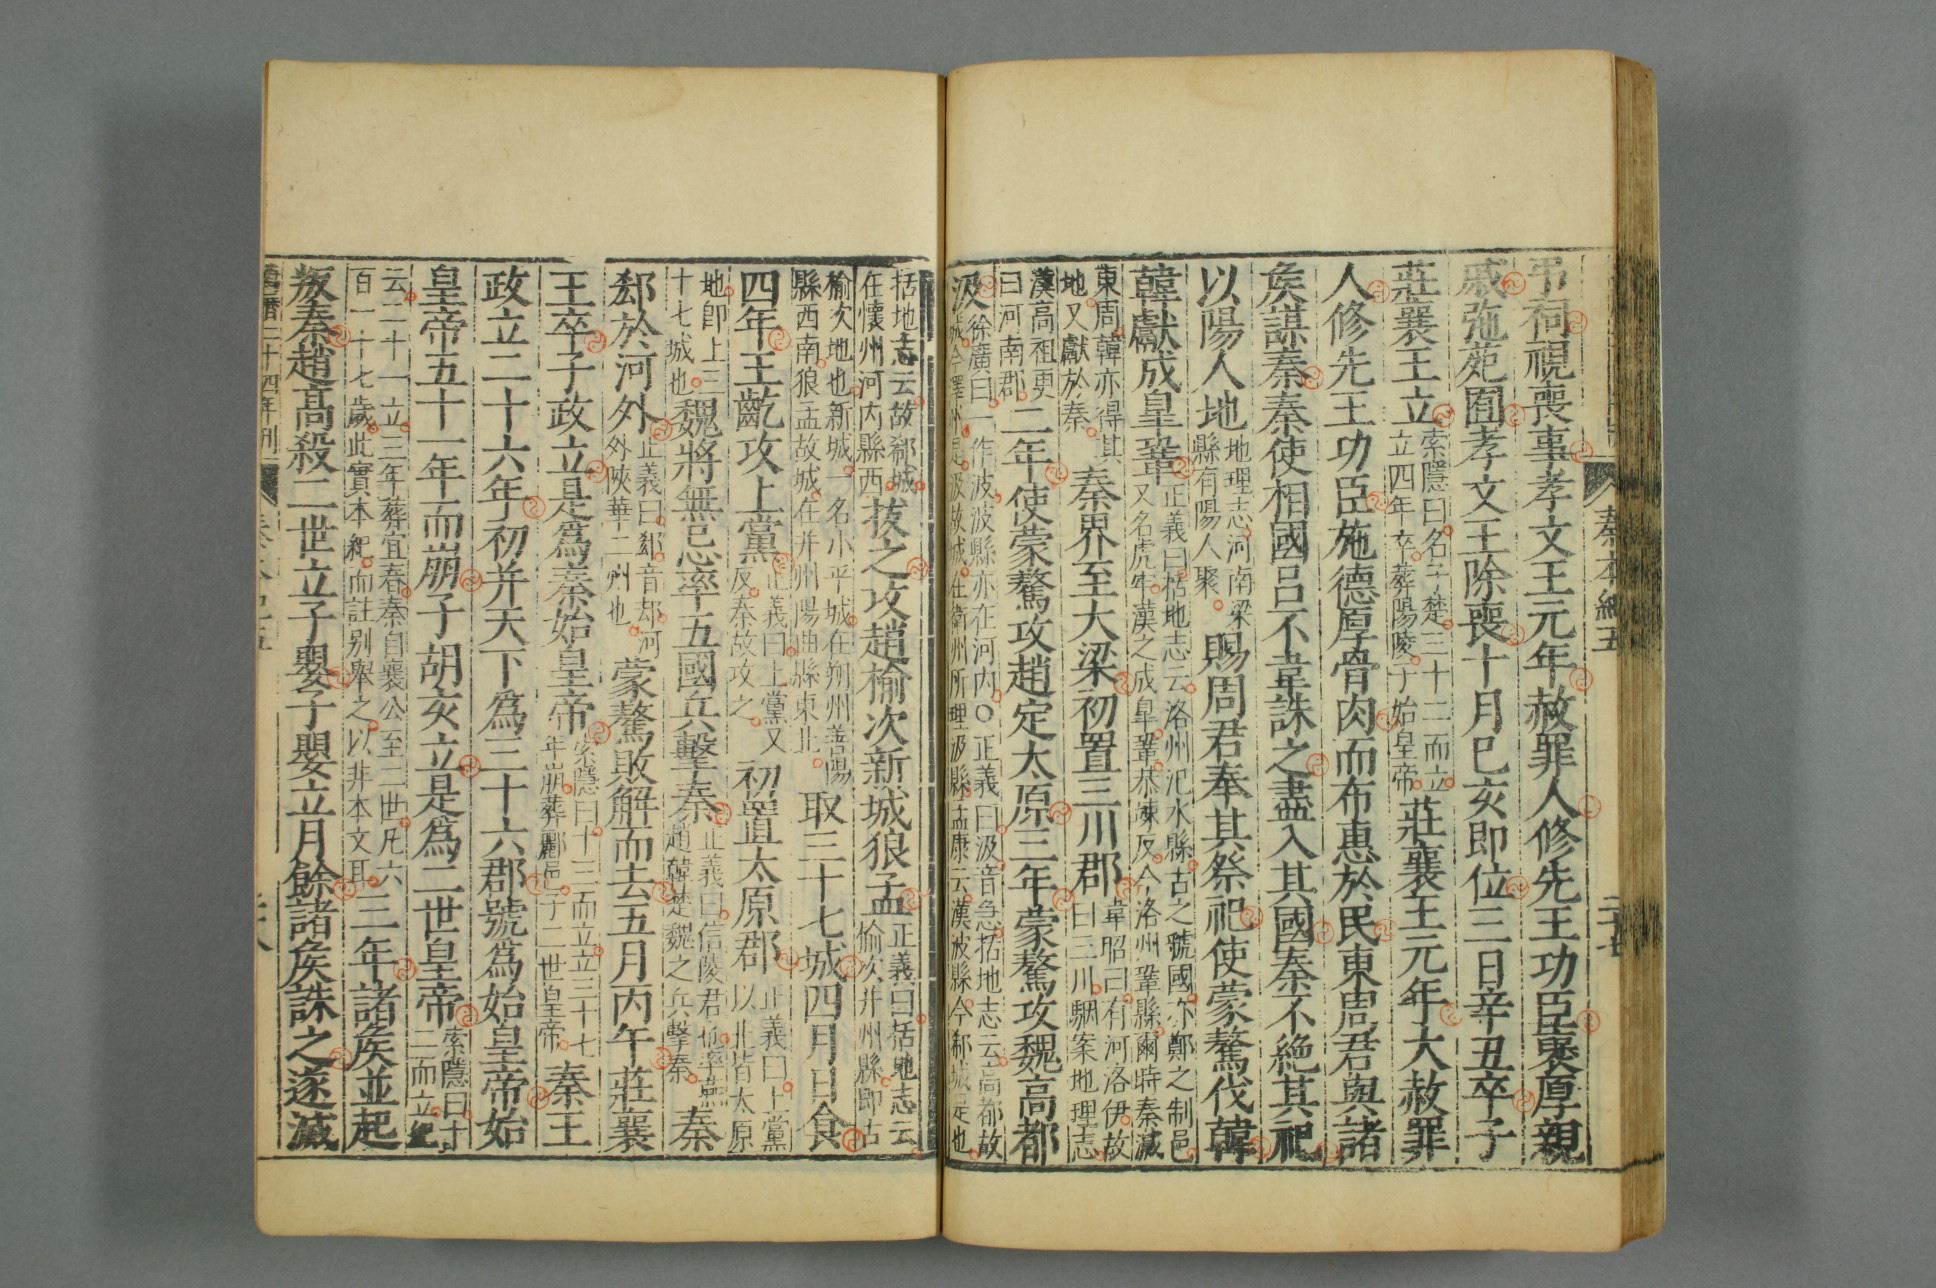 秦本紀五
二十七
弔祠視喪事孝文王元年赦罪人修先王功臣褒厚親
戚弛苑囿孝文王除喪十月己亥即位三日辛丑卒子
莊襄王立
索隱曰名子楚三十二而立
立四年卒葬陽陵子始皇帝
莊襄王元年大赦罪
人修先王功臣施德厚骨肉而布惠於民東周君與諸
矦謀秦秦使相國呂不韋誅之盡入其國秦不絕其祀
以陽人地
地理志河南梁
縣有陽人聚
賜周君奉其祭祀使蒙驁伐韓
韓獻成皇鞏
正義曰括地志云洛州汜水縣古之虢國亦鄭之制邑
又名虎牢漢之成皐鞏恭竦反今洛州鞏縣爾時秦滅
東周韓亦得其
地又獻於秦
秦界至大梁初置三川郡
韋昭曰有河洛伊故
曰三川駰案地理志
漢高祖更
曰河南郡
二年使蒙驁攻趙定太原三年蒙驁攻魏高都
汲
徐廣曰一作波波縣亦在河内○正義曰汲音急括地志云高都故
城今澤州是汲故城在衛州所理汲縣孟康云漢波縣今郗城是也
括地志云故郗城
在懷州河内縣西
拔之攻趙榆次新城狼孟
正義曰括地志云
榆次并州縣即古
榆次地也新城一名小平城在朔州善陽
縣西南狼孟故城在并州陽曲縣東北
取三十七城四月日食
四年王齕攻上黨
正義曰上黨又
反秦故攻之
初置太原郡
正義曰上黨
以北皆太原
地即上三
十七城也
魏將無忌率五國兵擊秦
正義曰信陵君也率燕
趙韓楚魏之兵擊秦
秦
郄於河外
正義曰郄音却河
外陝華二州也
蒙驁敗解而去五月丙午莊襄
王卒子政立是爲秦始皇帝
索隱曰十三而立立三十七
年崩葬酈邑子二世皇帝
秦王
政立二十六年初并天下爲三十六郡號爲始皇帝始
皇帝五十一年而崩子胡亥立是爲二世皇帝
索隱曰十
二而立紀
云二十一立三年葬宜春秦自襄公至二世凡六
百一十七歲此實本紀而註别舉之以非本文耳
三年諸矦並起
叛秦趙高殺二世立子嬰子嬰立月餘諸矦誅之遂滅
萬曆二十四年刊